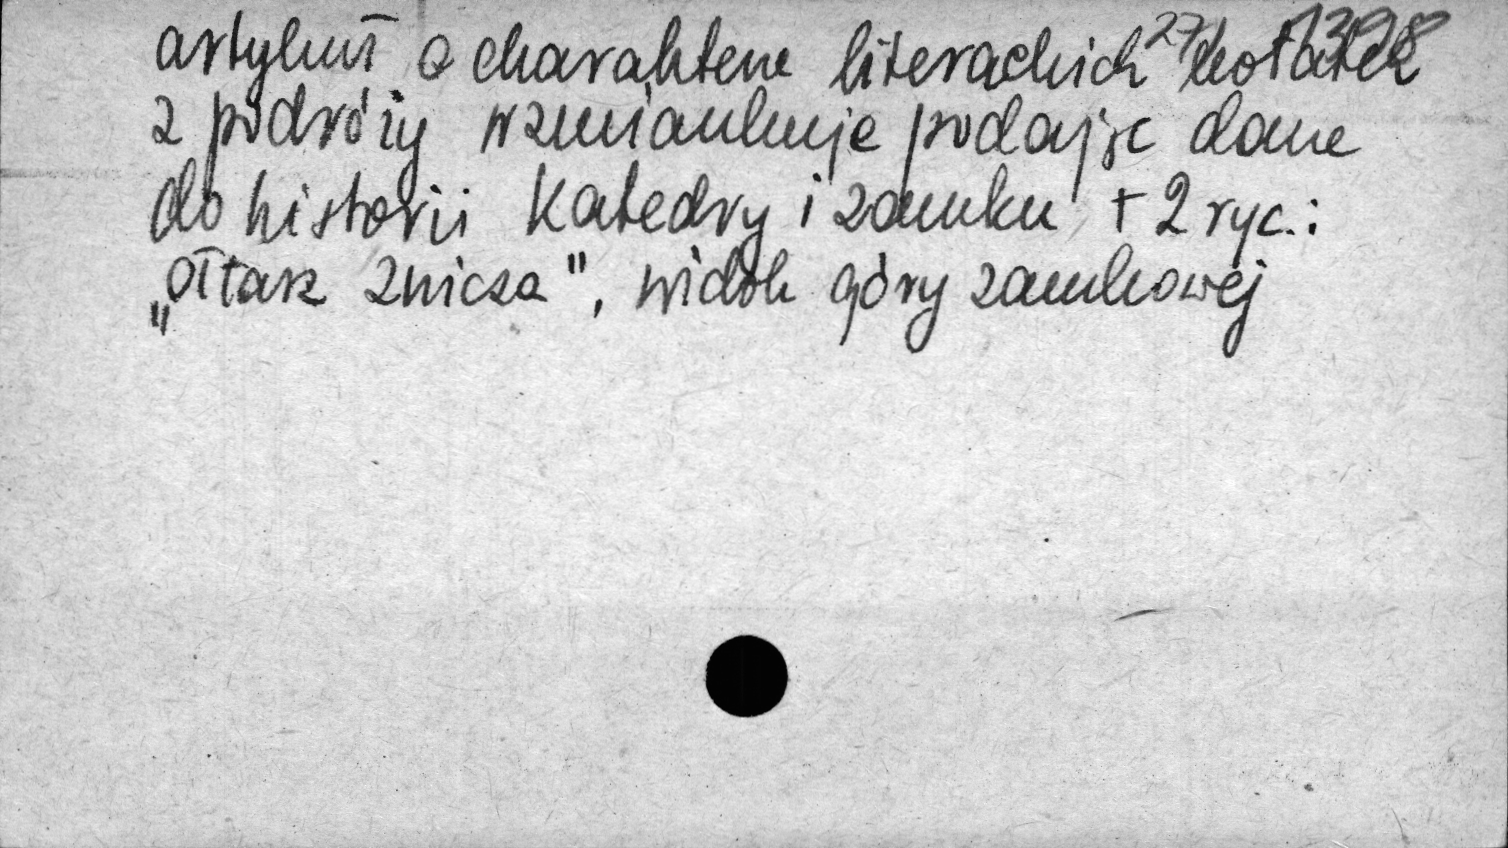 artykuł o charakterze literackich notatek
z podróży wzmiankuje podając dane
do historii Katedry i zamku + 2 ryc.:
„ołtarz znicza", widok góry zamkowej